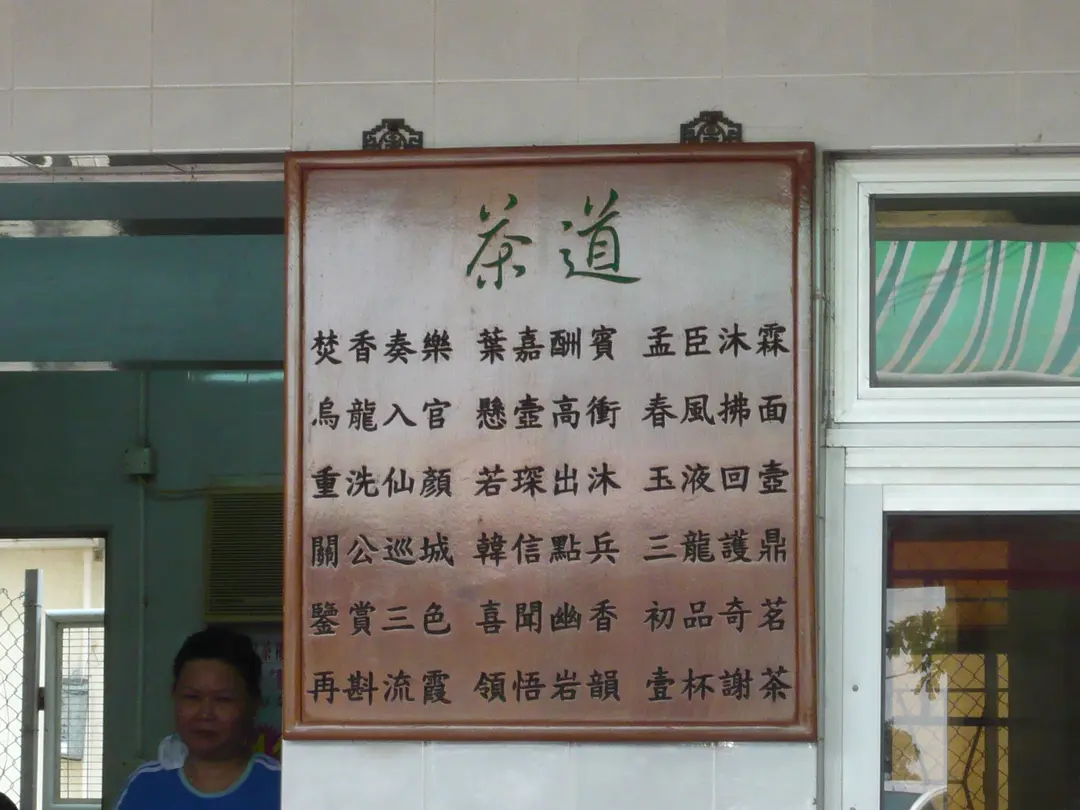 茶道
焚香奏樂 葉嘉酬賓 孟臣沐霖
烏龍入官 懸壺高衝 春風拂面
重洗仙顏 若琛出沐 玉液回壺
關公巡城 韓信點兵 三龍護鼎
鑒賞三色 喜聞幽香 初品奇茗
再斟流霞 領悟岩韻 壹杯謝茶